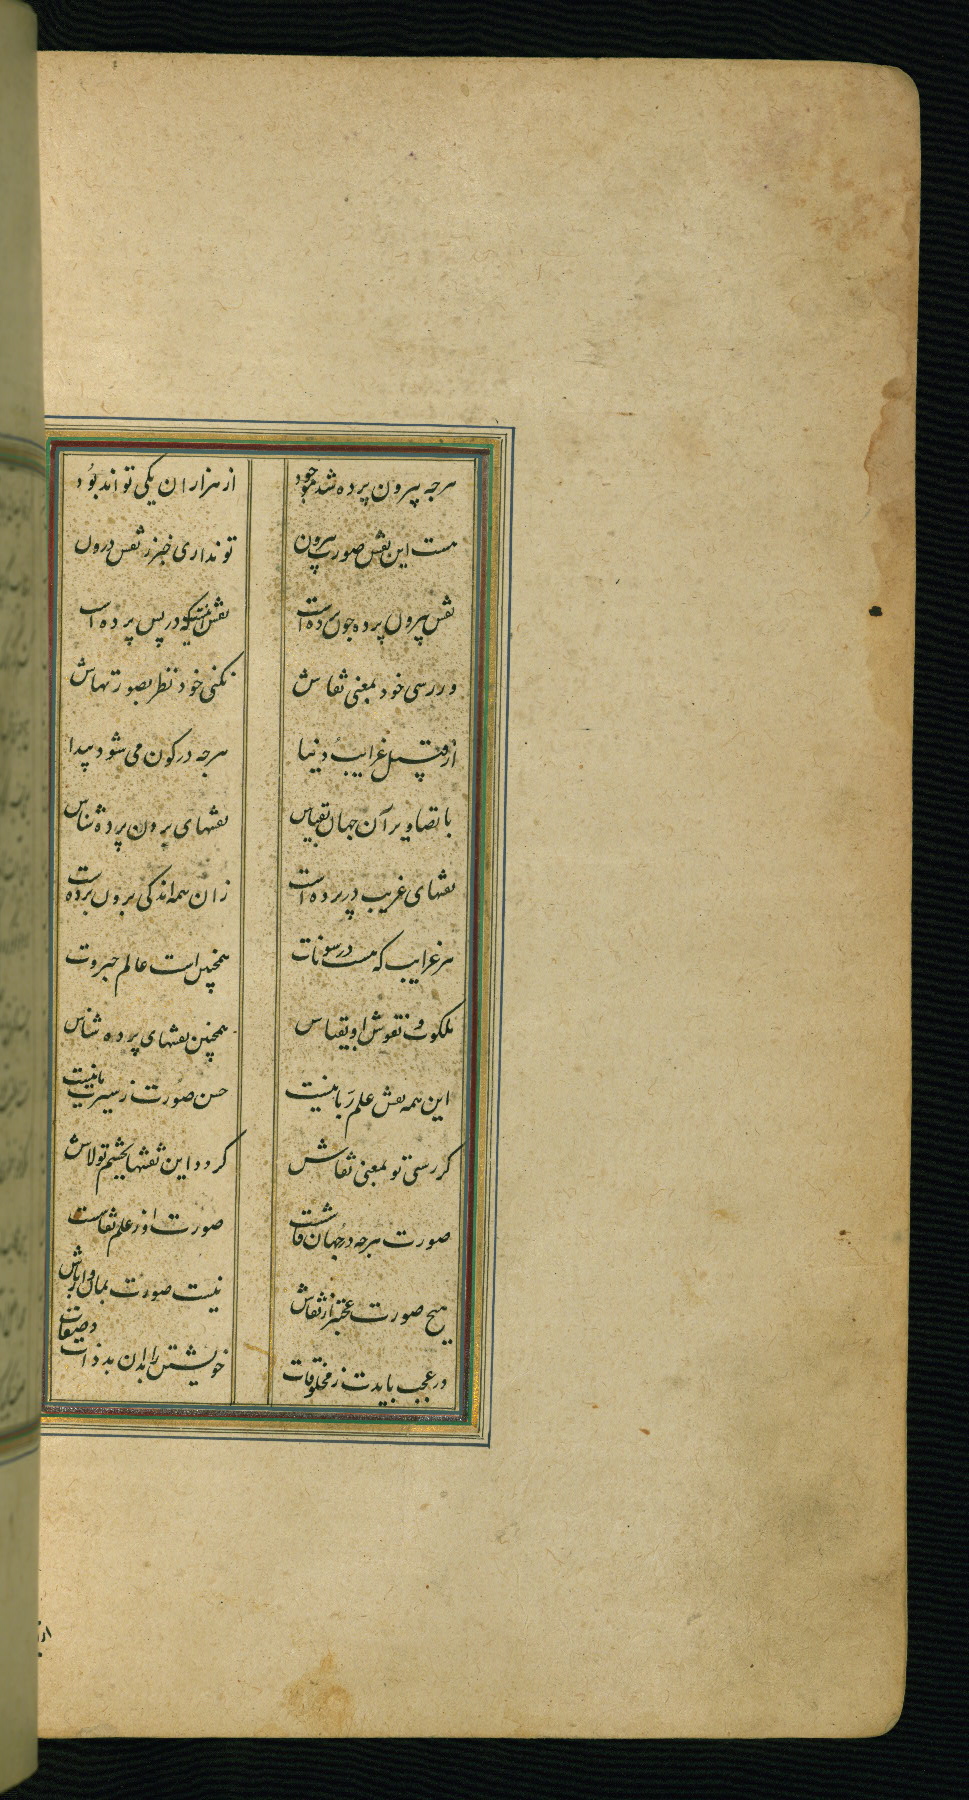 هرچه بیرون پرده شد موجود
از هزاران یکی تواند بود
هست این نقش صورت بیرون
تو نداری خبر ز نقش درون
نقش بیرون پرده چون زده است
نقش اینست که در پس پرده است
ور رسی خود بمعنی نقاش
نکنی خود نظر بصورتهاش
از قبیل غرایب دنیا
هرچه در کون می شود پیدا
با تصاویر آن جهان بقیاس
نقشهای برون پرده شناس
نقشهای غریب در پرده است
زان همه اندکی برون پرده است
هر غرایب که هست در
همچنین است عالم جبروت
ملکوت و نقوش او بقیاس
همچنین نقشهای پرده شناس
این همه نقش علم ربانیست
حسن صورت ز سیرت
گر رسی تو بمعنی نقاش
گردد این نقشها بچشم تو لاش
صورت هرچه در جهان
صورت او ز علم نقاشست
هیچ صورت عجبتر از نقاش
نیست صورت بمان و
در عجب بایدت ز مخلوقات
خویشتن را بدان بذات و صفات